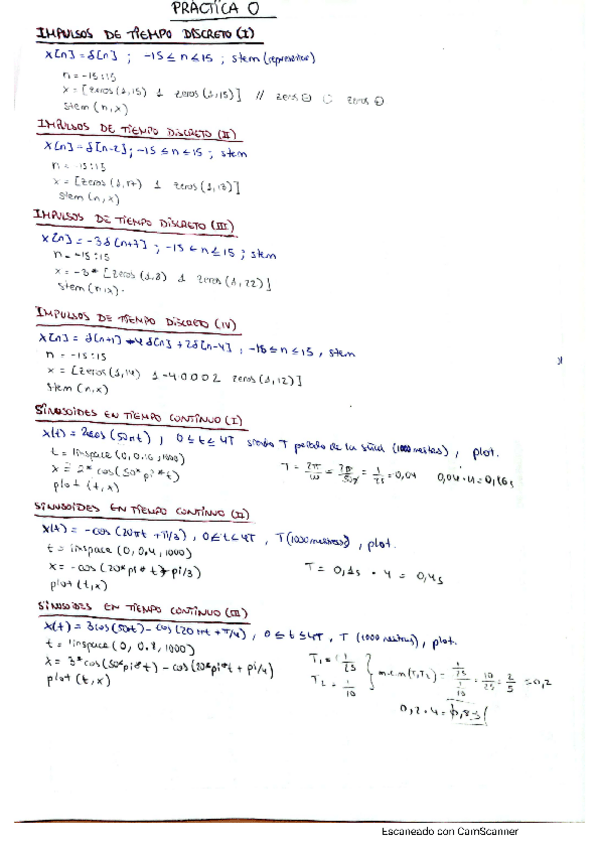 PRÁCTICA 0
IMPULSOS DE TIEMPO DISCRETO (I)
x[n] = δ[n] ; -15 ≤ n ≤ 15 ; stem (representar)
n = -15:15
x = [zeros(1,15) 1 zeros(1,15)] // zeros ⊖ ○ zeros ⊕
stem (n,x)
IMPULSOS DE TIEMPO DISCRETO (II)
x[n] = δ[n-2] ; -15 ≤ n ≤ 15 ; stem
n = -15:15
x = [zeros(1,17) 1 zeros(1,13)]
stem (n,x)
IMPULSOS DE TIEMPO DISCRETO (III)
x[n] = -3δ[n+7] ; -15 ≤ n ≤ 15 ; stem
n = -15:15
x = -3* [zeros(1,8) 1 zeros(1,22)]
stem (n,x).
IMPULSOS DE TIEMPO DISCRETO (IV)
x[n] = δ[n+1] -4δ[n] + 2δ[n-4] ; -15 ≤ n ≤ 15 , stem
n = -15:15
x = [zeros(1,14) 1 -4 0 0 0 2 zeros(1,12)]
stem (n,x)
SINUSOIDES EN TIEMPO CONTINUO (I)
x(t) = 2cos(50πt) , 0 ≤ t ≤ 4T siendo T periodo de la señal (1000 muestras) , plot.
t = linspace (0, 0.16, 1000)
x = 2* cos(50*pi*t)
plot (t,x)
T = 2π/ω = 2π/50π = 1/25 = 0,04 0,04·4 = 0,16s
SINUSOIDES EN TIEMPO CONTINUO (II)
x(t) = -cos(20πt + π/3) , 0 ≤ t ≤ 4T , T (1000 muestras) , plot.
t = linspace (0, 0.4, 1000)
x = -cos(20*pi*t + pi/3)
plot (t,x)
T = 0,1s · 4 = 0,4s
SINUSOIDES EN TIEMPO CONTINUO (III)
x(t) = 3cos(50t) - cos(20πt + π/4) , 0 ≤ t ≤ 4T, T (1000 muestras) , plot.
t = linspace (0, 0.8, 1000)
x = 3*cos(50*pi*t) - cos(20*pi*t + pi/4)
plot (t,x)
T₁ = 1/25
T₂ = 1/10
m.c.m(T₁,T₂) = 1/25 / 1/10 = 10/25 = 2/5 = 0,2
0,2·4 = 0,8s
Escaneado con CamScanner